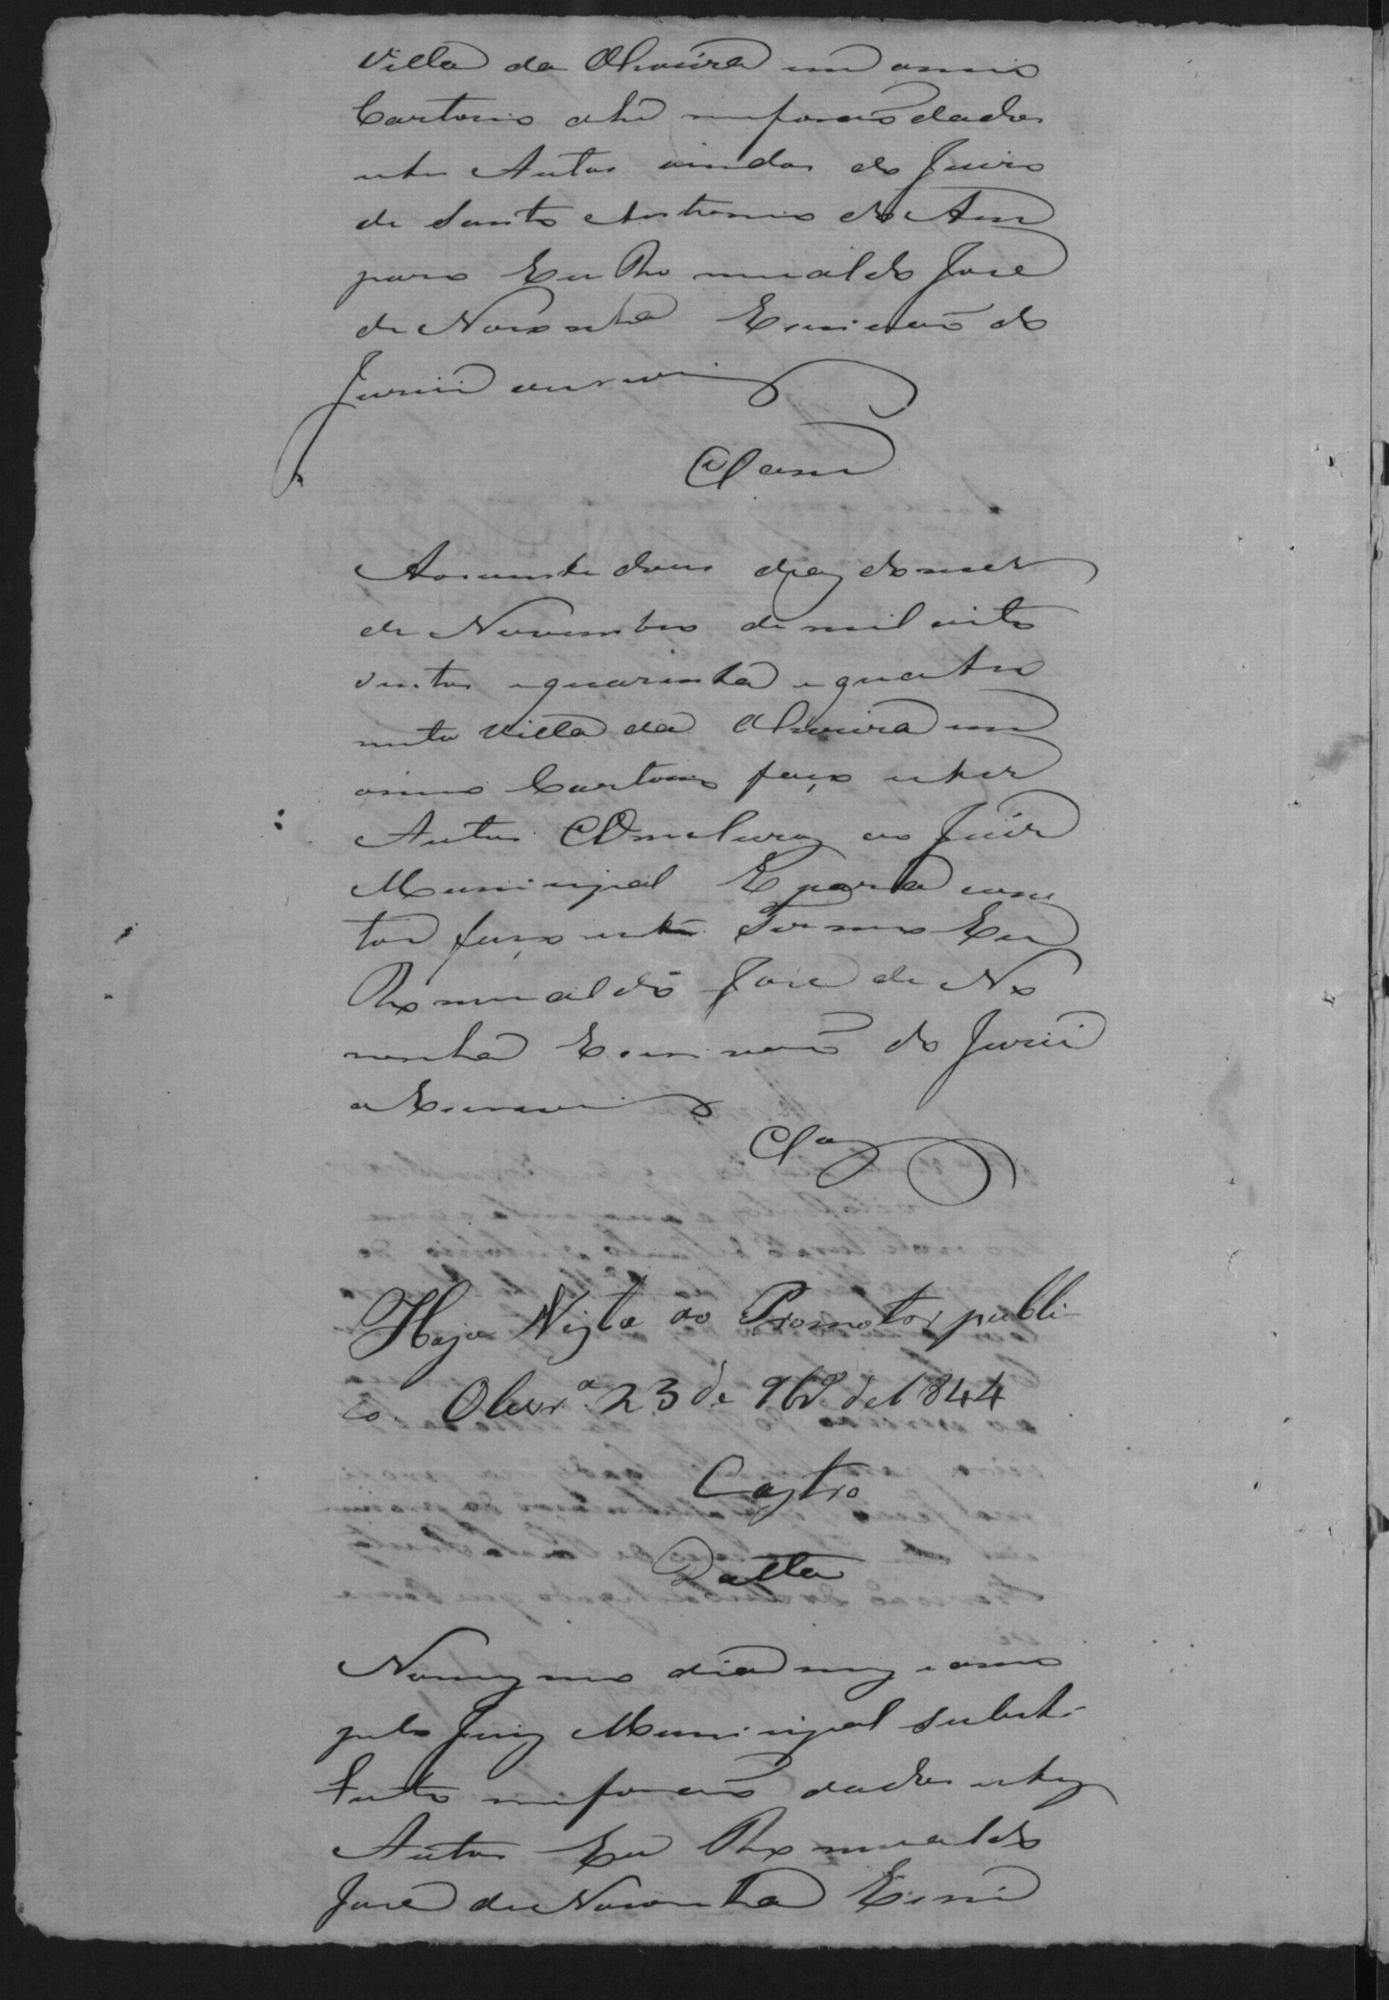 Villa da Oliveira em o meu
Cartorio ahi me forão dados
estes Autos vindos do Juizo
de Santo Antonio do Am
paro Eu Romualdo José
de Noronha Escrivão do
Jurii o escrevi
Clam
Aos vinte dous dias do mes
de Novembro de mil oito
sentos e quarenta e quatro
nesta Villa da Oliveira em
o meu Cartorio faço estes
Autos Comcluzos ao Juiz
Municipal E para cons
tar faço este Termo Eu
Romualdo José de No
ronha Escrivão do Jurii
o Escrevi
Clos
Haja Vista ao Promotor publi
co. Olivr.ª 23 de 9br.º de 1844
Castro
Datta
No mesmo dia mez e anno
pelo Juiz Municipal substi
tuto me forão dados estes
Autos Eu Romualdo
José de Noronha Escri